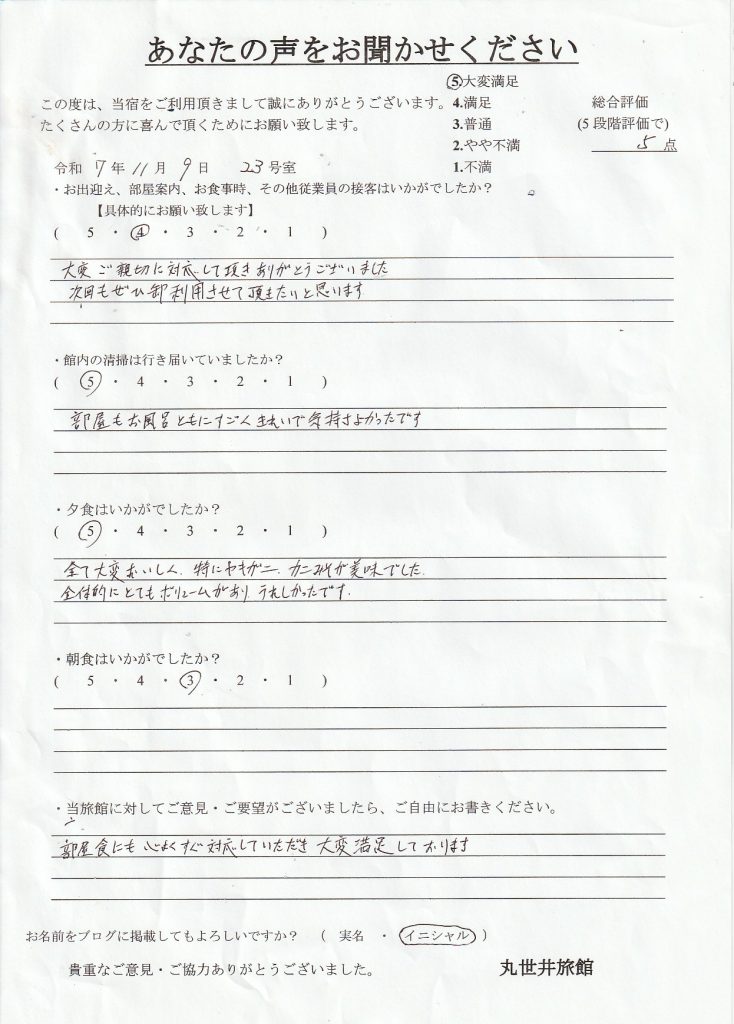 あなたの声をお聞かせください
⑤大変満足
この度は、当宿をご利用頂きまして誠にありがとうございます。4.満足 総合評価
たくさんの方に喜んで頂くためにお願い致します。 3.普通 (5段階評価で)
2.やや不満 5点
令和7年11月9日 23号室 1.不満
・お出迎え、部屋案内、お食事時、その他従業員の接客はいかがでしたか？
【具体的にお願い致します】
( 5 ・ ④ ・ 3 ・ 2 ・ 1 )
大変ご親切に対応して頂きありがとうございました
次回もぜひ御利用させて頂きたいと思います
・館内の清掃は行き届いていましたか？
( ⑤ ・ 4 ・ 3 ・ 2 ・ 1 )
部屋もお風呂ともにすごくきれいで気持さよかったです
・夕食はいかがでしたか？
( ⑤ ・ 4 ・ 3 ・ 2 ・ 1 )
全て大変おいしく、特にヤキガニ、カニみそが美味でした。
全体的にとてもボリュームがあり、うれしかったです。
・朝食はいかがでしたか？
( 5 ・ 4 ・ ③ ・ 2 ・ 1 )
・当旅館に対してご意見・ご要望がございましたら、ご自由にお書きください。
部屋食にも心よくすぐ対応していただき大変満足しております
お名前をブログに掲載してもよろしいですか？ ( 実名 ・ イニシャル )
貴重なご意見・ご協力ありがとうございました。 丸世井旅館